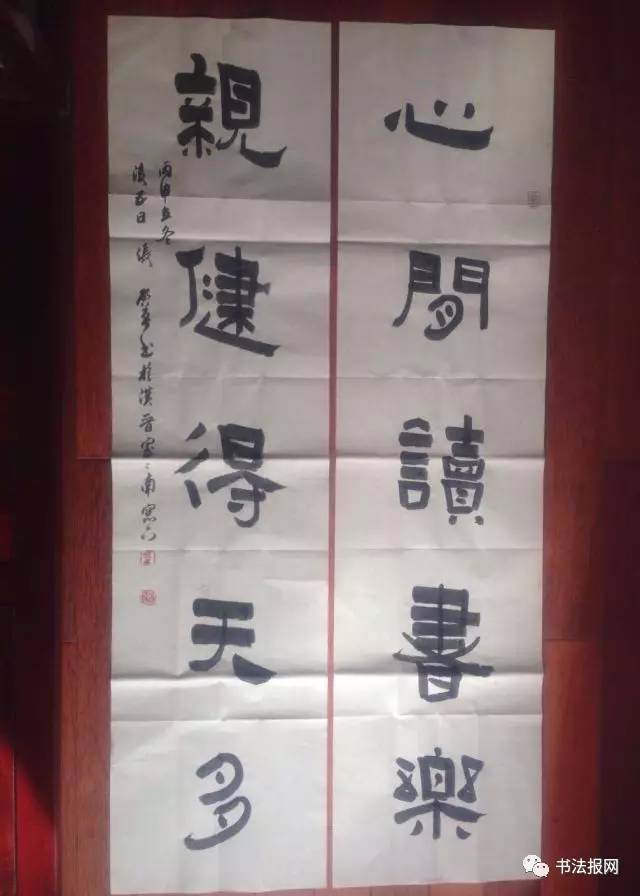 心閒讀書樂
親健得天多
丙申立冬
後五日 張
書於漢晉室之南窗下
书法报网